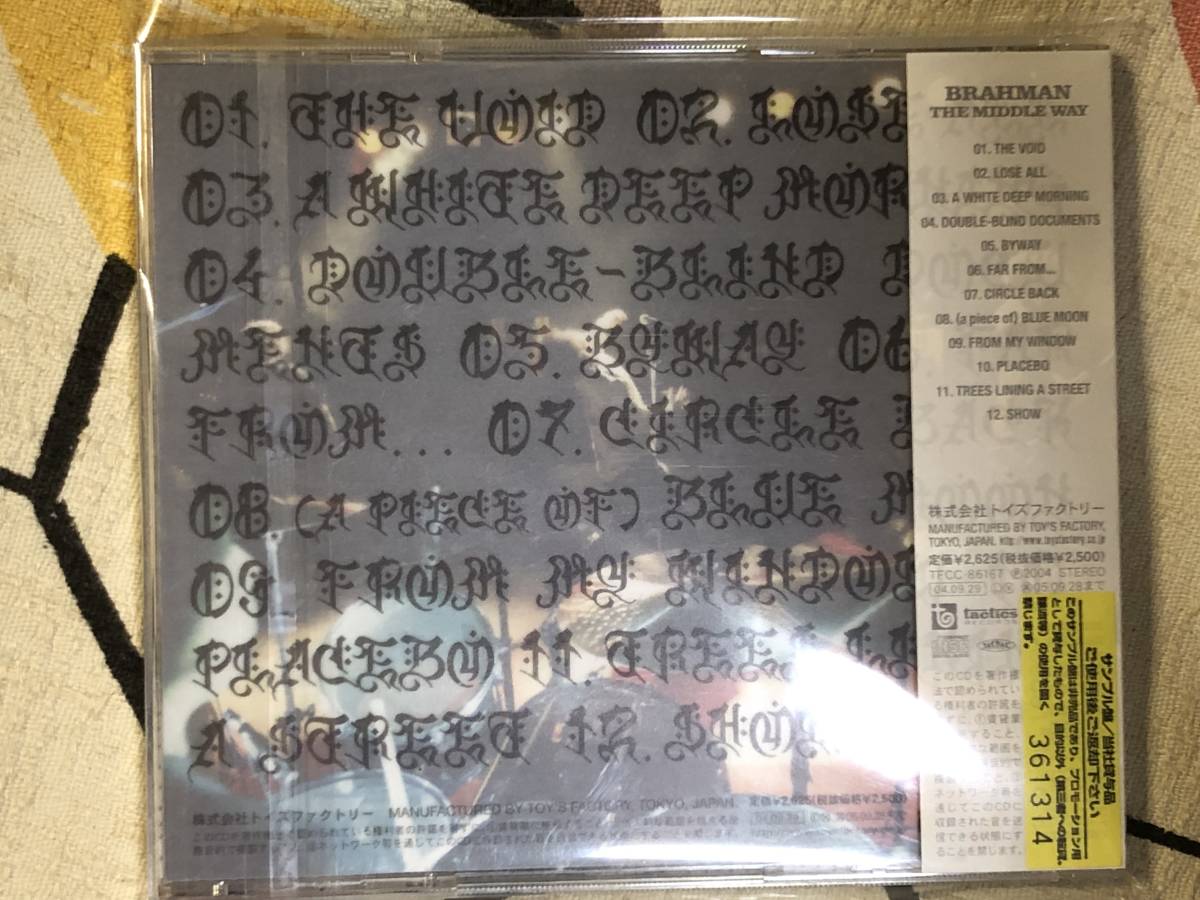 01. THE VOID 02. LOSE
03. A WHITE DEEP MOR
04. DOUBLE-BLIND D
MENTS 05. BYWAY 06
FROM... 07. CIRCLE B
08. (A PIECE OF) BLUE M
09. FROM MY WINDO
PLACEBO 11. TREES LI
A STREET 12. SHOW
株式会社トイズファクトリー MANUFACTURED BY TOY'S FACTORY, TOKYO, JAPAN. 定価¥2,625(税抜価格¥2,500)
BRAHMAN
THE MIDDLE WAY
01. THE VOID
02. LOSE ALL
03. A WHITE DEEP MORNING
04. DOUBLE-BLIND DOCUMENTS
05. BYWAY
06. FAR FROM...
07. CIRCLE BACK
08. (a piece of) BLUE MOON
09. FROM MY WINDOW
10. PLACEBO
11. TREES LINING A STREET
12. SHOW
株式会社トイズファクトリー
MANUFACTURED BY TOY'S FACTORY,
TOKYO, JAPAN. http://www.toysfactory.co.jp
定価¥2,625(税抜価格¥2,500)
TFCC-86167 ℗2004 STEREO
04.09.29 05.09.28まで
tactics
このCDを著作権
法で認められてい
る権利者の許諾を
ネットワーク等を
通じてこのCDに
収録された音を送
信できる状態にす
ることを禁じます。
サンプル盤/当社貸与品
ご使用後ご返却下さい
このサンプル盤は非売品であり、プロモーション用
として貸与したもので、目的以外(第三者への転貸、
譲渡等)の使用を固く
禁じます。
361314